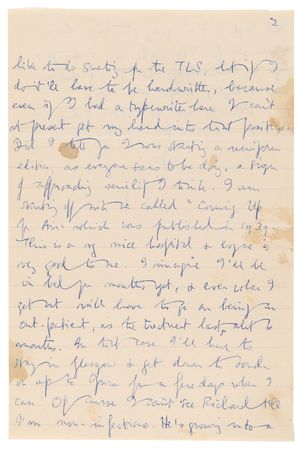 2
like to do something for the TLS, but if I
do it'll have to be handwritten, because
even if I had a typewriter here I can't
at present get my hand into that position.
Did I tell you I was starting a uniform
edition as everyone seems to be doing, a sign
of approaching senility I think. I am
starting off with one called "Coming Up
for Air" which was published in 1939.
This is a very nice hospital & everyone is
very good to me. I imagine I'll be
in bed for months yet, & even when I
get out will have to go on being an
out-patient, as the treatment lasts about 6
months. In that case I'll have to
stay in Glasgow & get down to London
or up to Jura for a few days when I
can. Of course I can't see Richard till
I'm non-infectious. He's growing into a